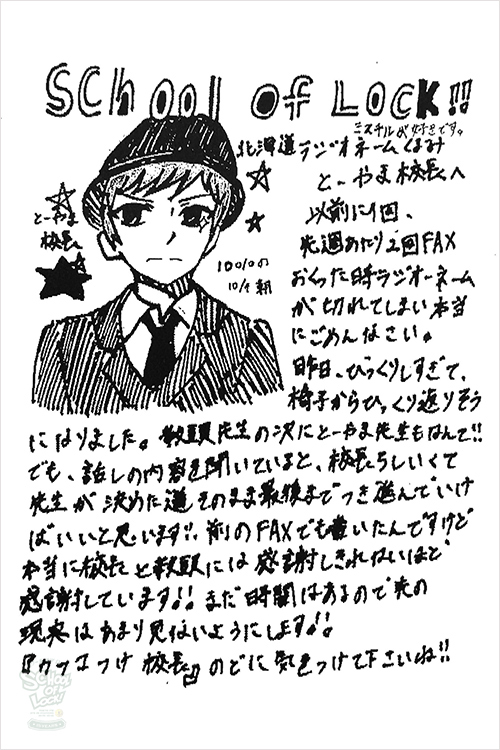 SCHOOL OF LOCK!!
ミスチルが好きです。
北海道ラジオネームくるみ
とーやま校長へ
とーやま
校長
以前に1回、
先週あたり2回FAX
おくった時ラジオネーム
が切れてしまい本当
にごめんなさい。
昨日、びっくりしすぎて、
椅子からひっくり返りそう
になりました。教頭先生の次にとーやま先生もなんて!!
でも、話しの内容を聞いていると、校長らしいくて
先生が決めた道そのまま最後までつき進んでいけ
ばいいと思います!!前のFAXでも書いたんですけど
本当に校長と教頭には感謝しきれないほど
感謝しています!!まだ時間はあるので先の
現実はあまり見ないようにします!!
校長!!のどに気をつけて下さいね!!
School
OF
Lock!